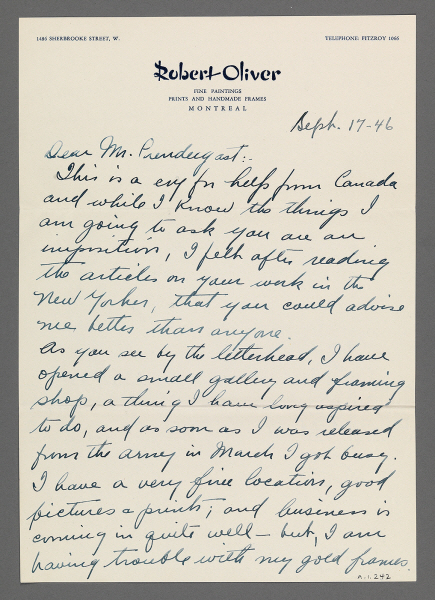 1486 SHERBROOKE STREET, W. TELEPHONE: FITZROY 1066
Robert Oliver
FINE PAINTINGS
PRINTS AND HANDMADE FRAMES
MONTREAL
Sept. 17-46
Dear Mr. Prendergast:-
This is a cry for help from Canada
and while I know the things I
am going to ask you are an
imposition, I felt after reading
the articles on your work in the
New Yorker, that you could advise
me better than anyone.
As you see by the letterhead, I have
opened a small gallery and framing
shop, a thing I have long aspired
to do, and as soon as I was released
from the army in March I got busy.
I have a very fine location, good
pictures & prints, and business is
coming in quite well - but, I am
having trouble with my gold frames.
A.1.242